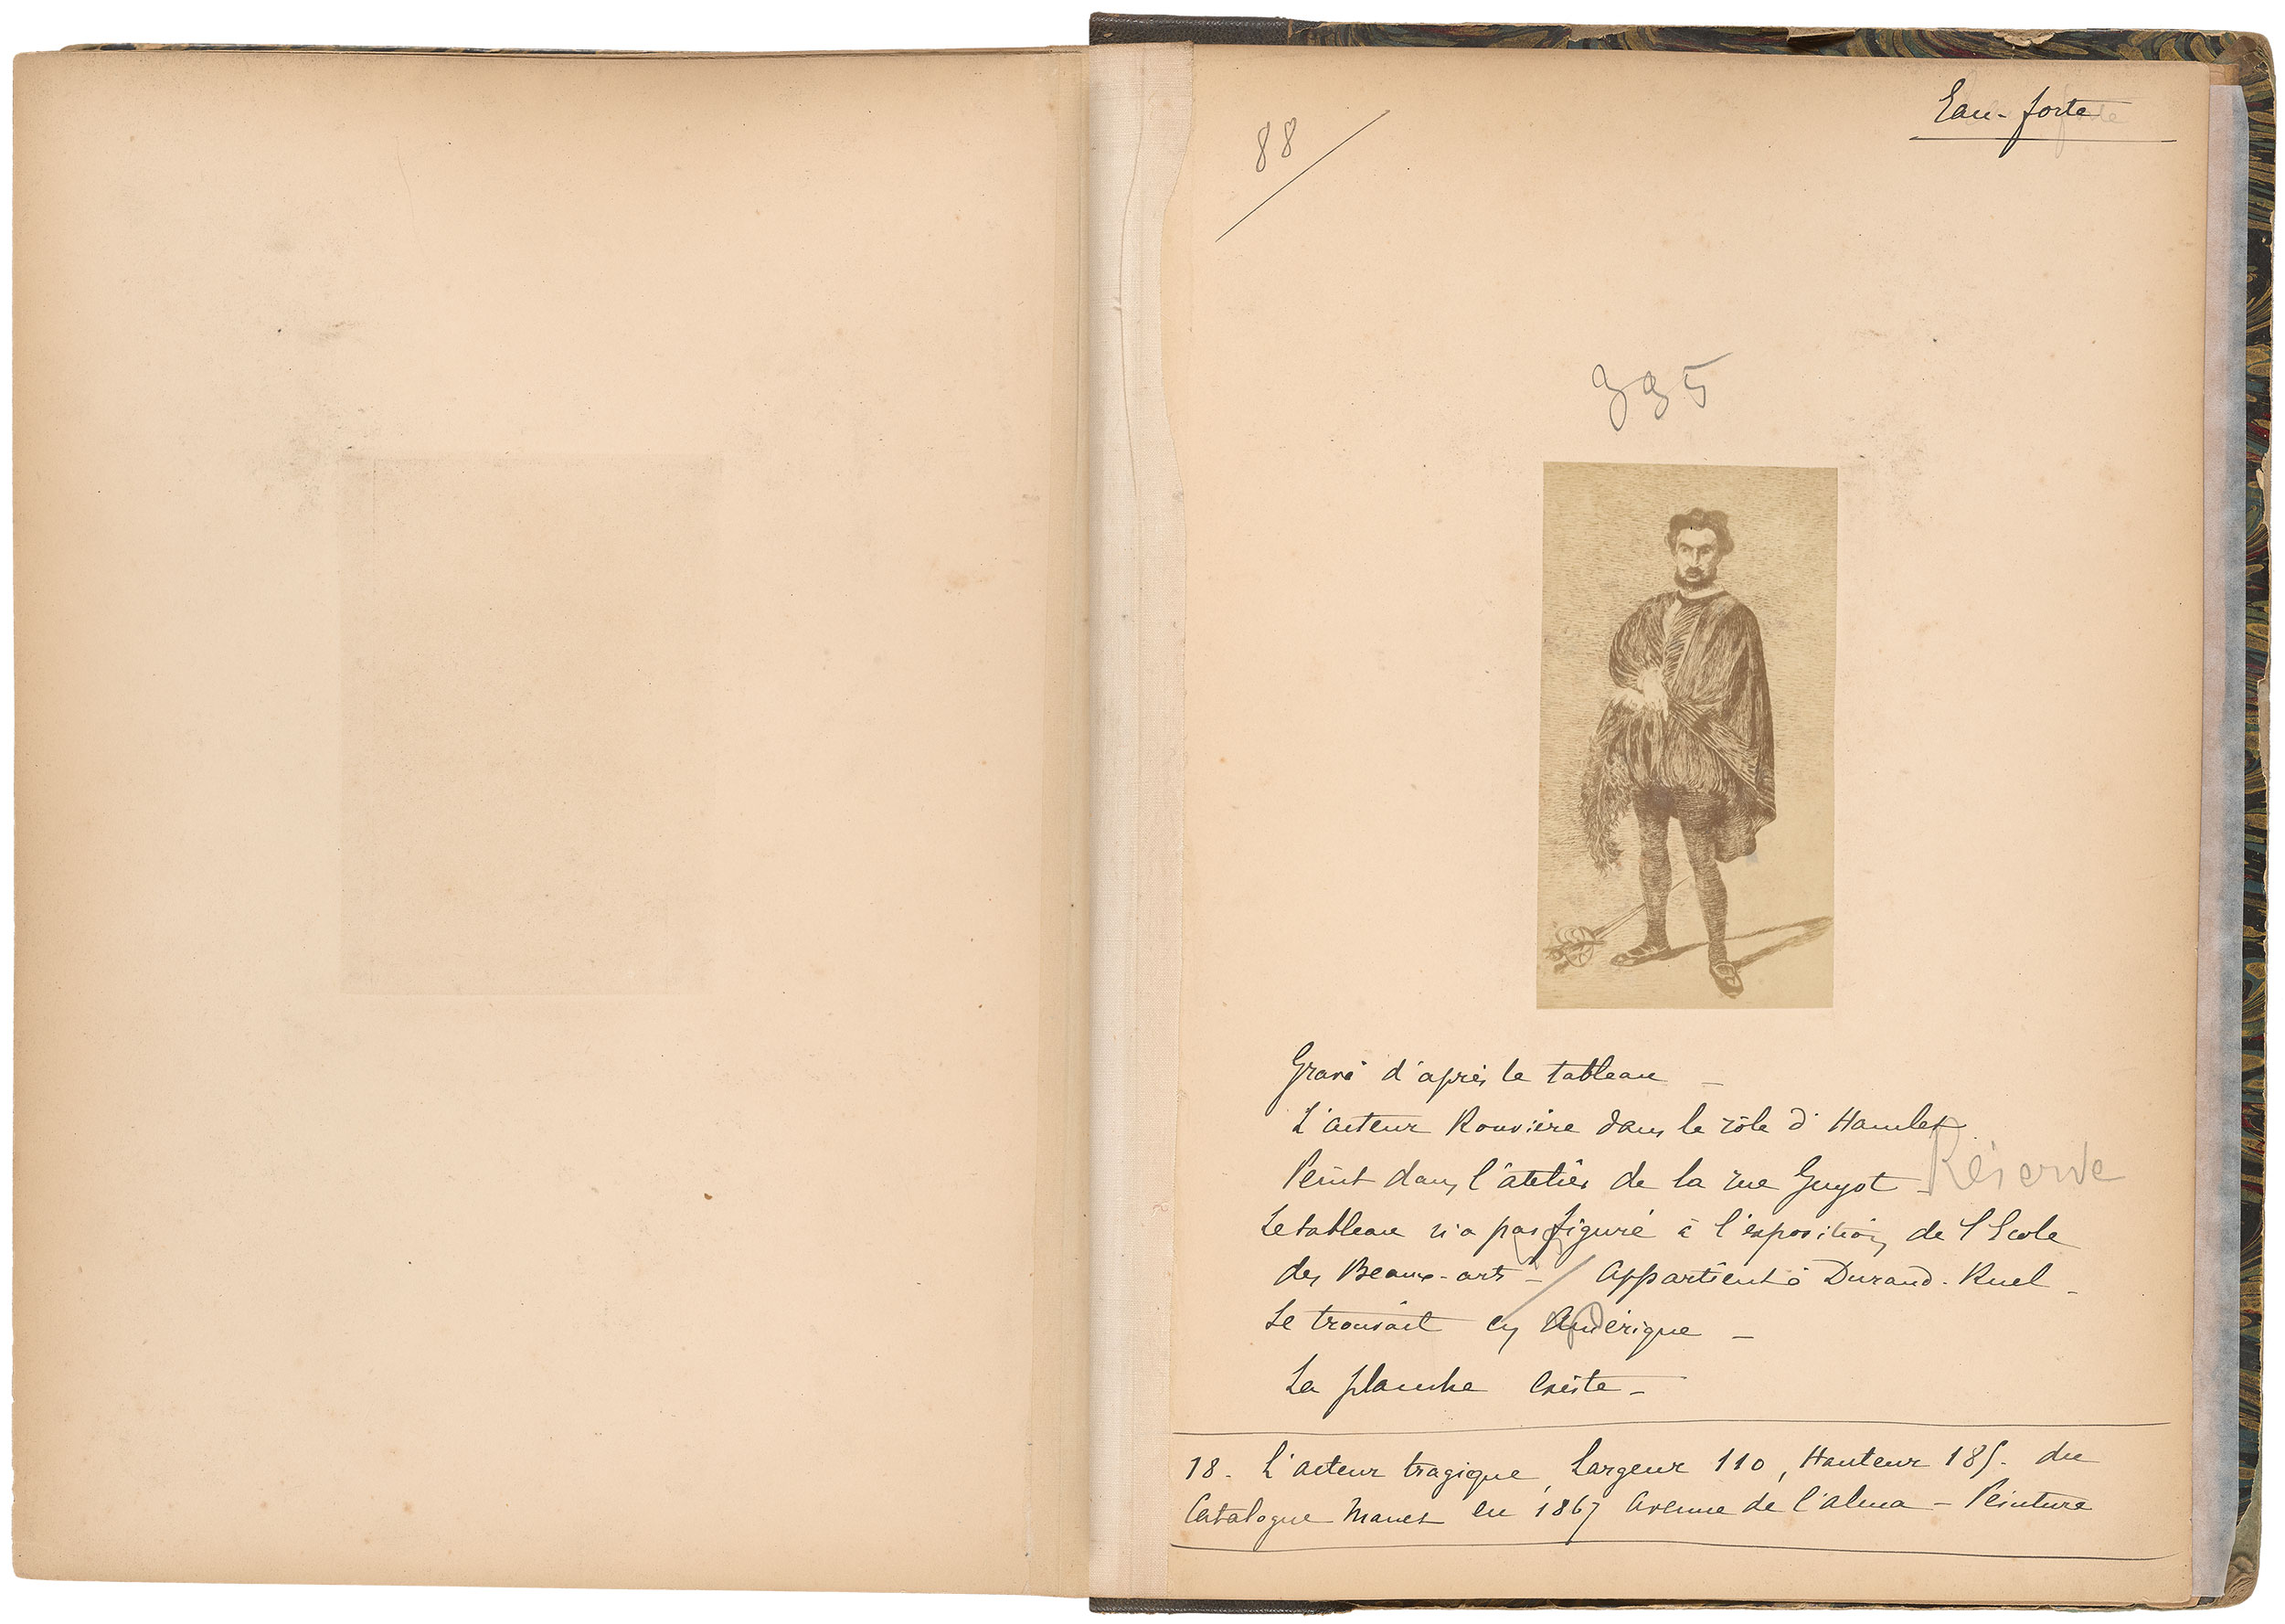 Eau-forte
88
335
Gravé d'après le tableau –
L'acteur Rouvière dans le rôle d'Hamlet
Réserve
Peint dans l'atelier de la rue Guyot –
Le tableau n'a pas figuré à l'exposition de l'Ecole
des Beaux-arts – / Appartient à Durand-Ruel –
Se trouvait en Amérique –
La planche existe –
18. L'acteur tragique, Largeur 110, Hauteur 185. du
Catalogue Manet en 1867 Avenue de l'alma – Peinture